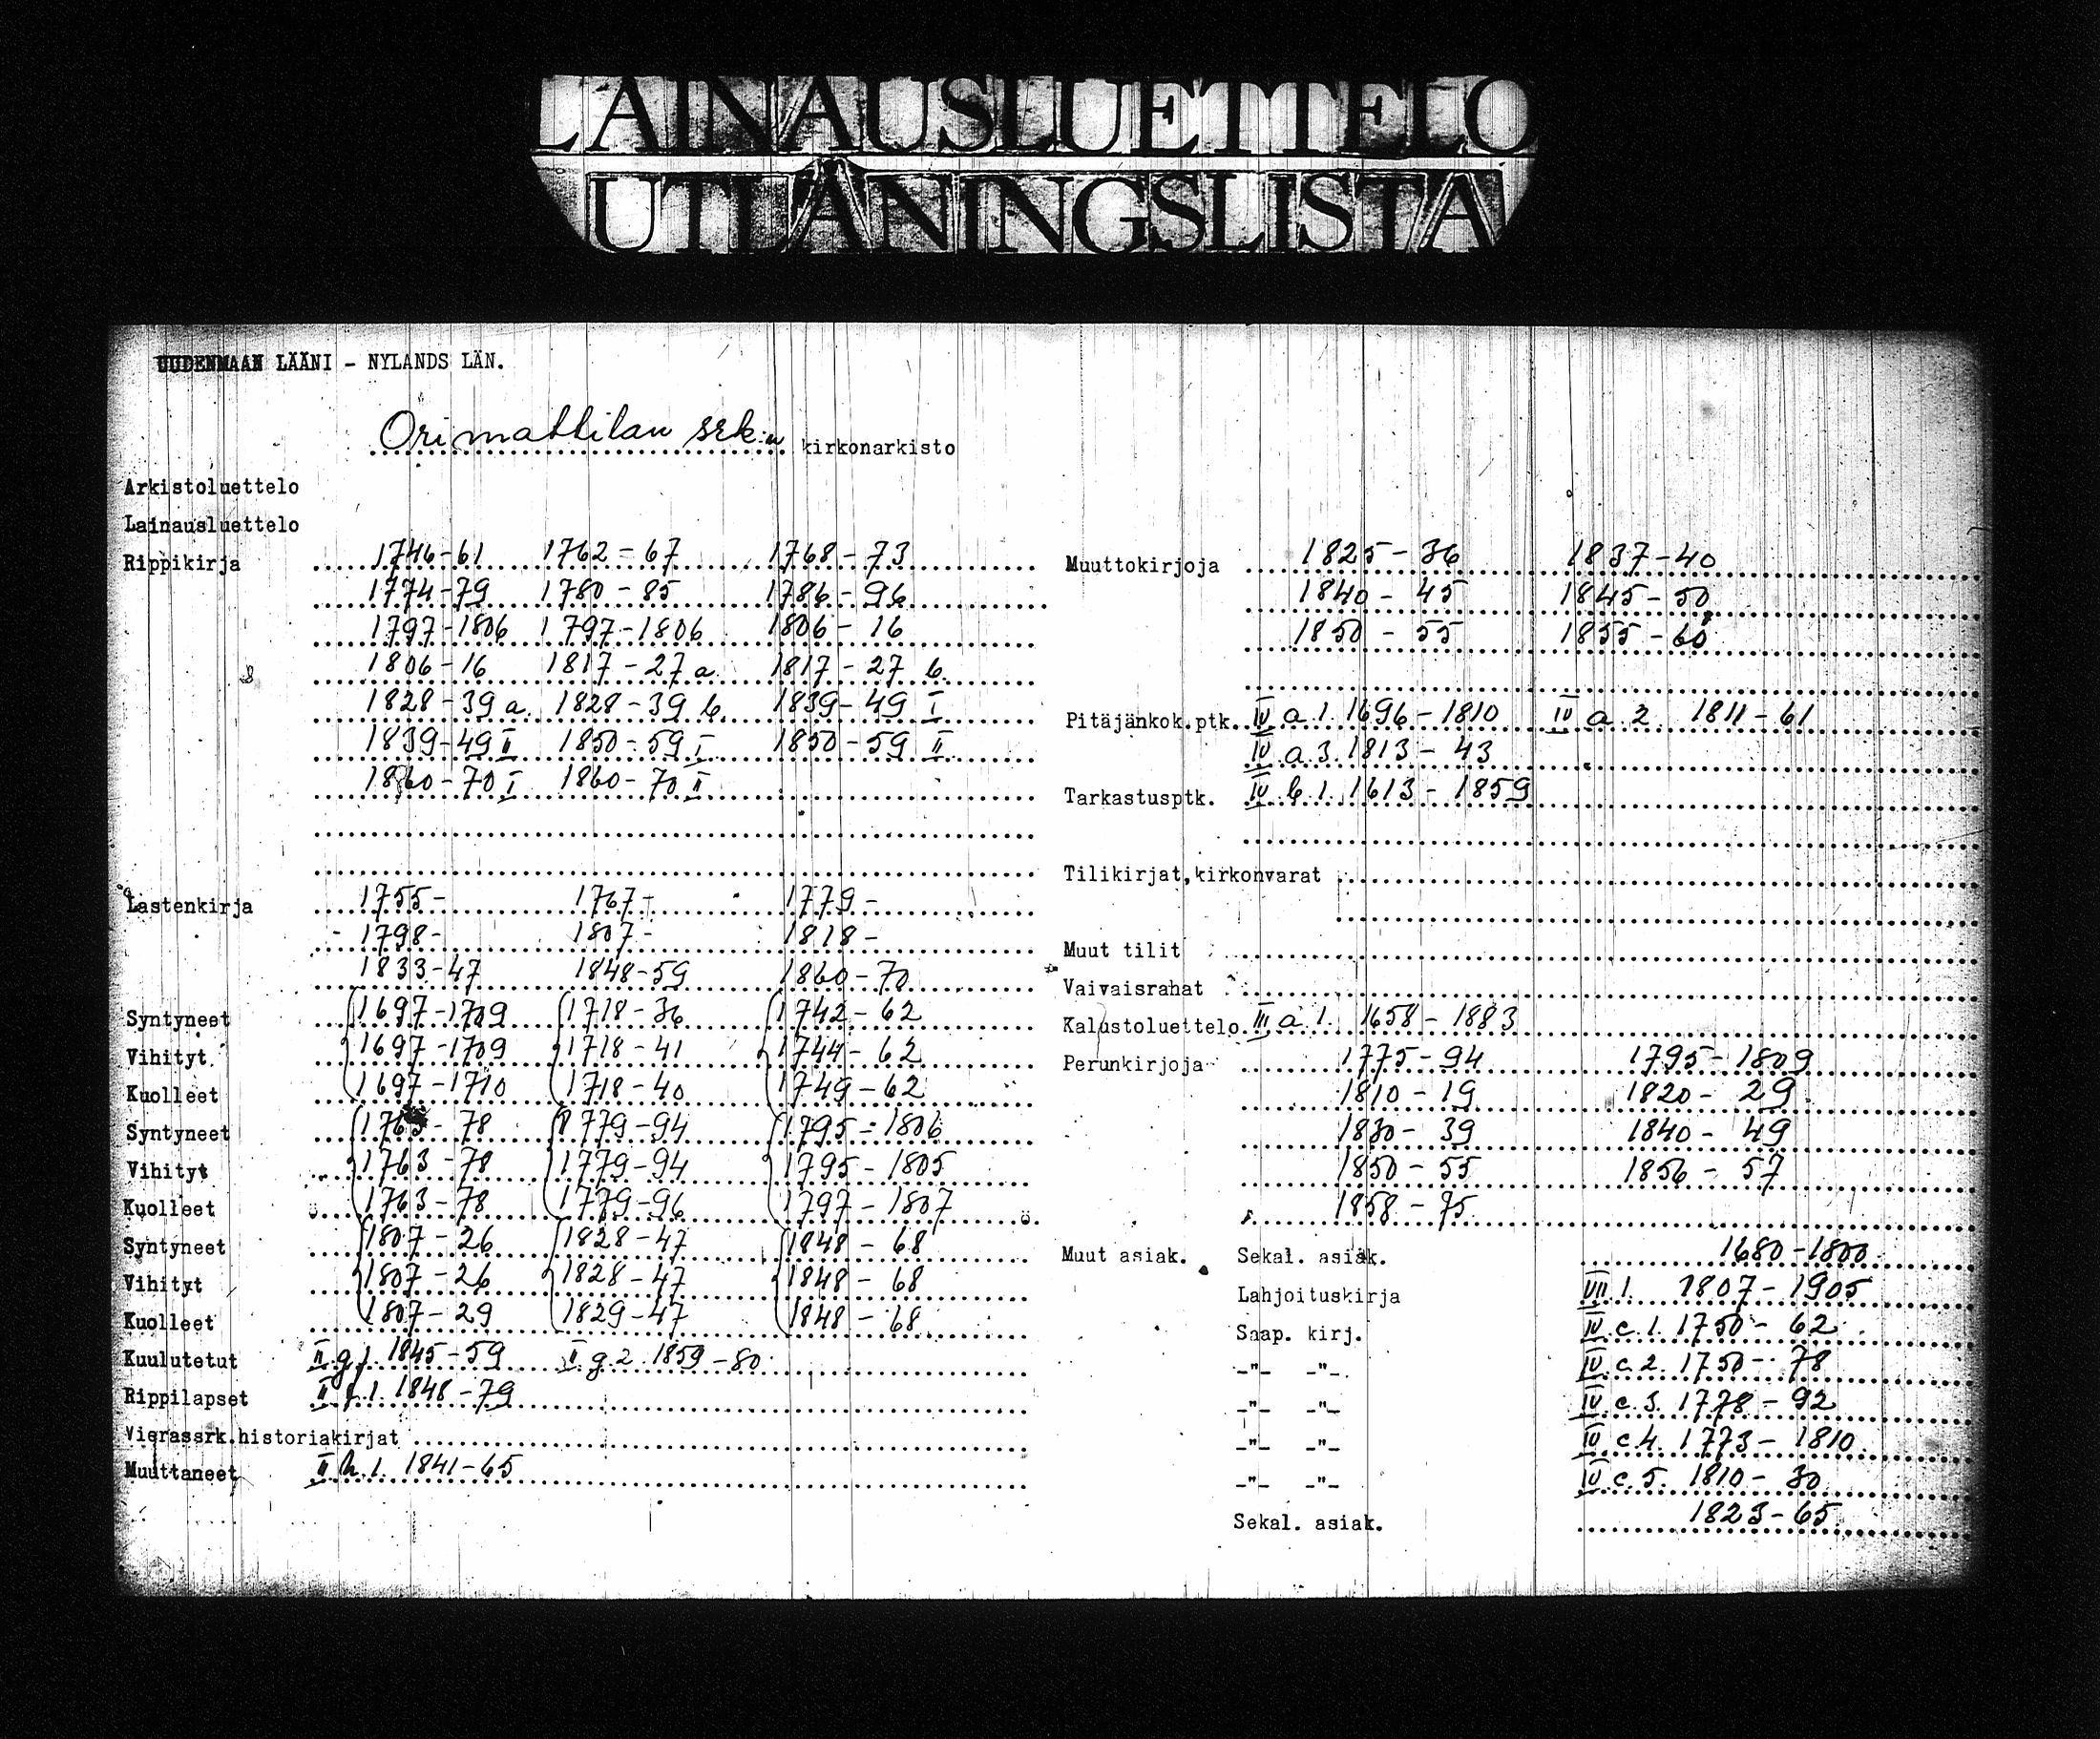 LAINAUSLUETTELO
UTLÅNINGSLISTA
UUDENMAAN LÄÄNI - NYLANDS LÄN.
Orimattilan srk:n kirkonarkisto
Arkistoluettelo
Lainausluettelo
Rippikirja 1746-61 1762-67 1768-73
1774-79 1780-85 1786-96
1797-1806 1797-1806 1806-16
1806-16 1817-27 a. 1817-27 b.
1828-39 a. 1828-39 b. 1839-49 I
1839-49 II 1850-59 I 1850-59 II
1860-70 I 1860-70 II
Lastenkirja 1755- 1767- 1779-
1798- 1807- 1818-
1833-47 1848-59 1860-70
Syntyneet 1697-1709 1718-36 1742-62
Vihityt 1697-1709 1718-41 1744-62
Kuolleet 1697-1710 1718-40 1749-62
Syntyneet 1763-78 1779-94 1795-1806
Vihityt 1763-78 1779-94 1795-1805
Kuolleet 1763-78 1779-96 1797-1807
Syntyneet 1807-26 1828-47 1848-68
Vihityt 1807-26 1828-47 1848-68
Kuolleet 1807-29 1829-47 1848-68
Kuulutetut II g 1. 1845-59 II g 2. 1859-80
Rippilapset II f. 1. 1848-79
Vierassrk.historiakirjat
Muuttaneet II h. 1. 1841-65
Muuttokirjoja 1825-36 1837-40
1840-45 1845-50
1850-55 1855-60
Pitäjänkok.ptk. IV a. 1. 1696-1810 IV a. 2. 1811-61
IV a. 3. 1813-43
Tarkastusptk. IV b. 1. 1613-1859
Tilikirjat,kirkonvarat
Muut tilit
Vaivaisrahat
Kalustoluettelo III a. 1. 1658-1883
Perunkirjoja 1775-94 1795-1809
1810-19 1820-29
1830-39 1840-49
1850-55 1856-57
1858-75
Muut asiak. Sekal. asiak. 1680-1800
Lahjoituskirja VII 1. 1807-1905
Saap. kirj. IV c. 1. 1750-62
-"- -"- IV c. 2. 1750-78
-"- -"- IV c. 3. 1778-92
-"- -"- IV c. 4. 1773-1810
-"- -"- IV c. 5. 1810-30
Sekal. asiak. 1823-65